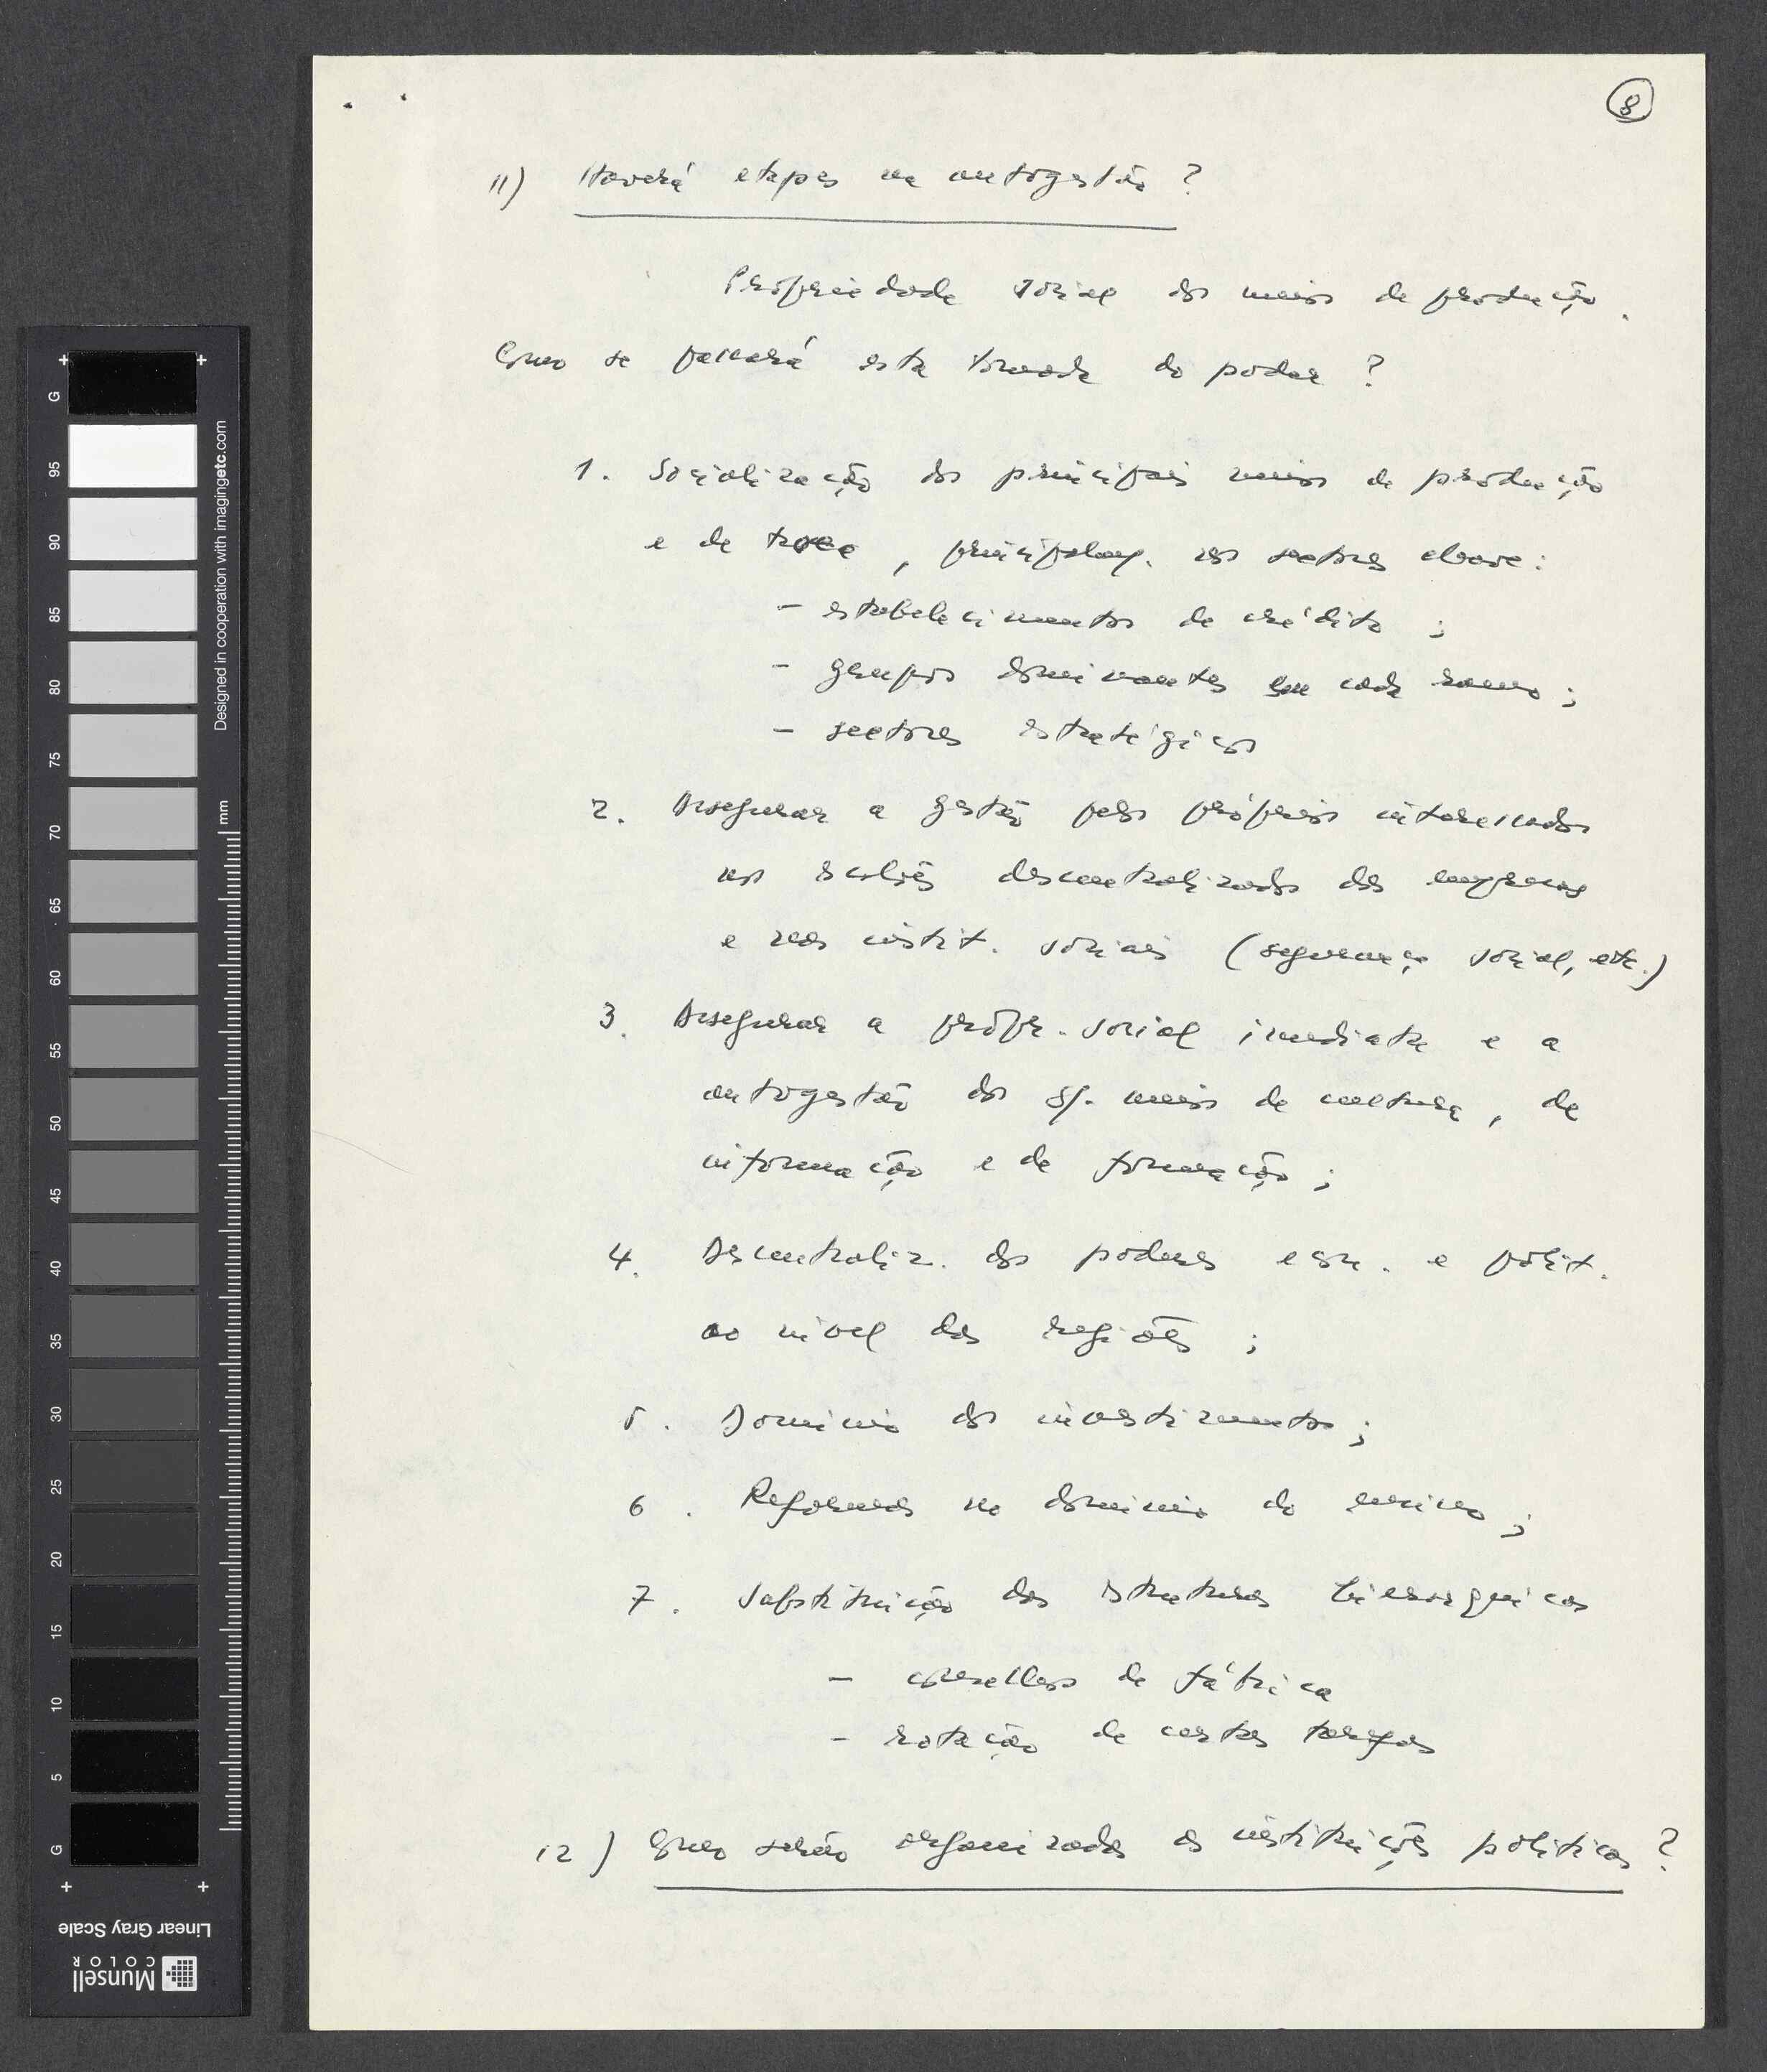 8
11) Haverá etapas na autogestão ?
Propriedade social dos meios de produção.
Como se passará esta tomada do poder ?
1. Socialização dos principais meios de produção
e de troca, principalm. nos sectores chave:
- estabelecimentos de crédito ;
- grupos dominantes em cada ramo ;
- sectores estratégicos
2. Assegurar a gestão pelos próprios interessados
nos escalões descentralizados das empresas
e nas instit. sociais (segurança social, etc.)
3. Assegurar a propr. social imediata e a
autogestão dos meios de cultura, de
informação e de formação ;
4. Descentraliz. dos poderes econ. e polít.
ao nível das regiões ;
5. Domínio dos investimentos ;
6. Reformas no domínio do ensino ;
7. Substituição das estruturas hierárquicas
- conselhos de fábrica
- rotação de certas tarefas
12) Como serão organizadas as instituições políticas ?
G 95 90 85 80 75 70 65 60 55 50 45 40 35 30 25 20 15 10 5 G
Designed in cooperation with imagingetc.com
mm
Linear Gray Scale
Munsell
COLOR